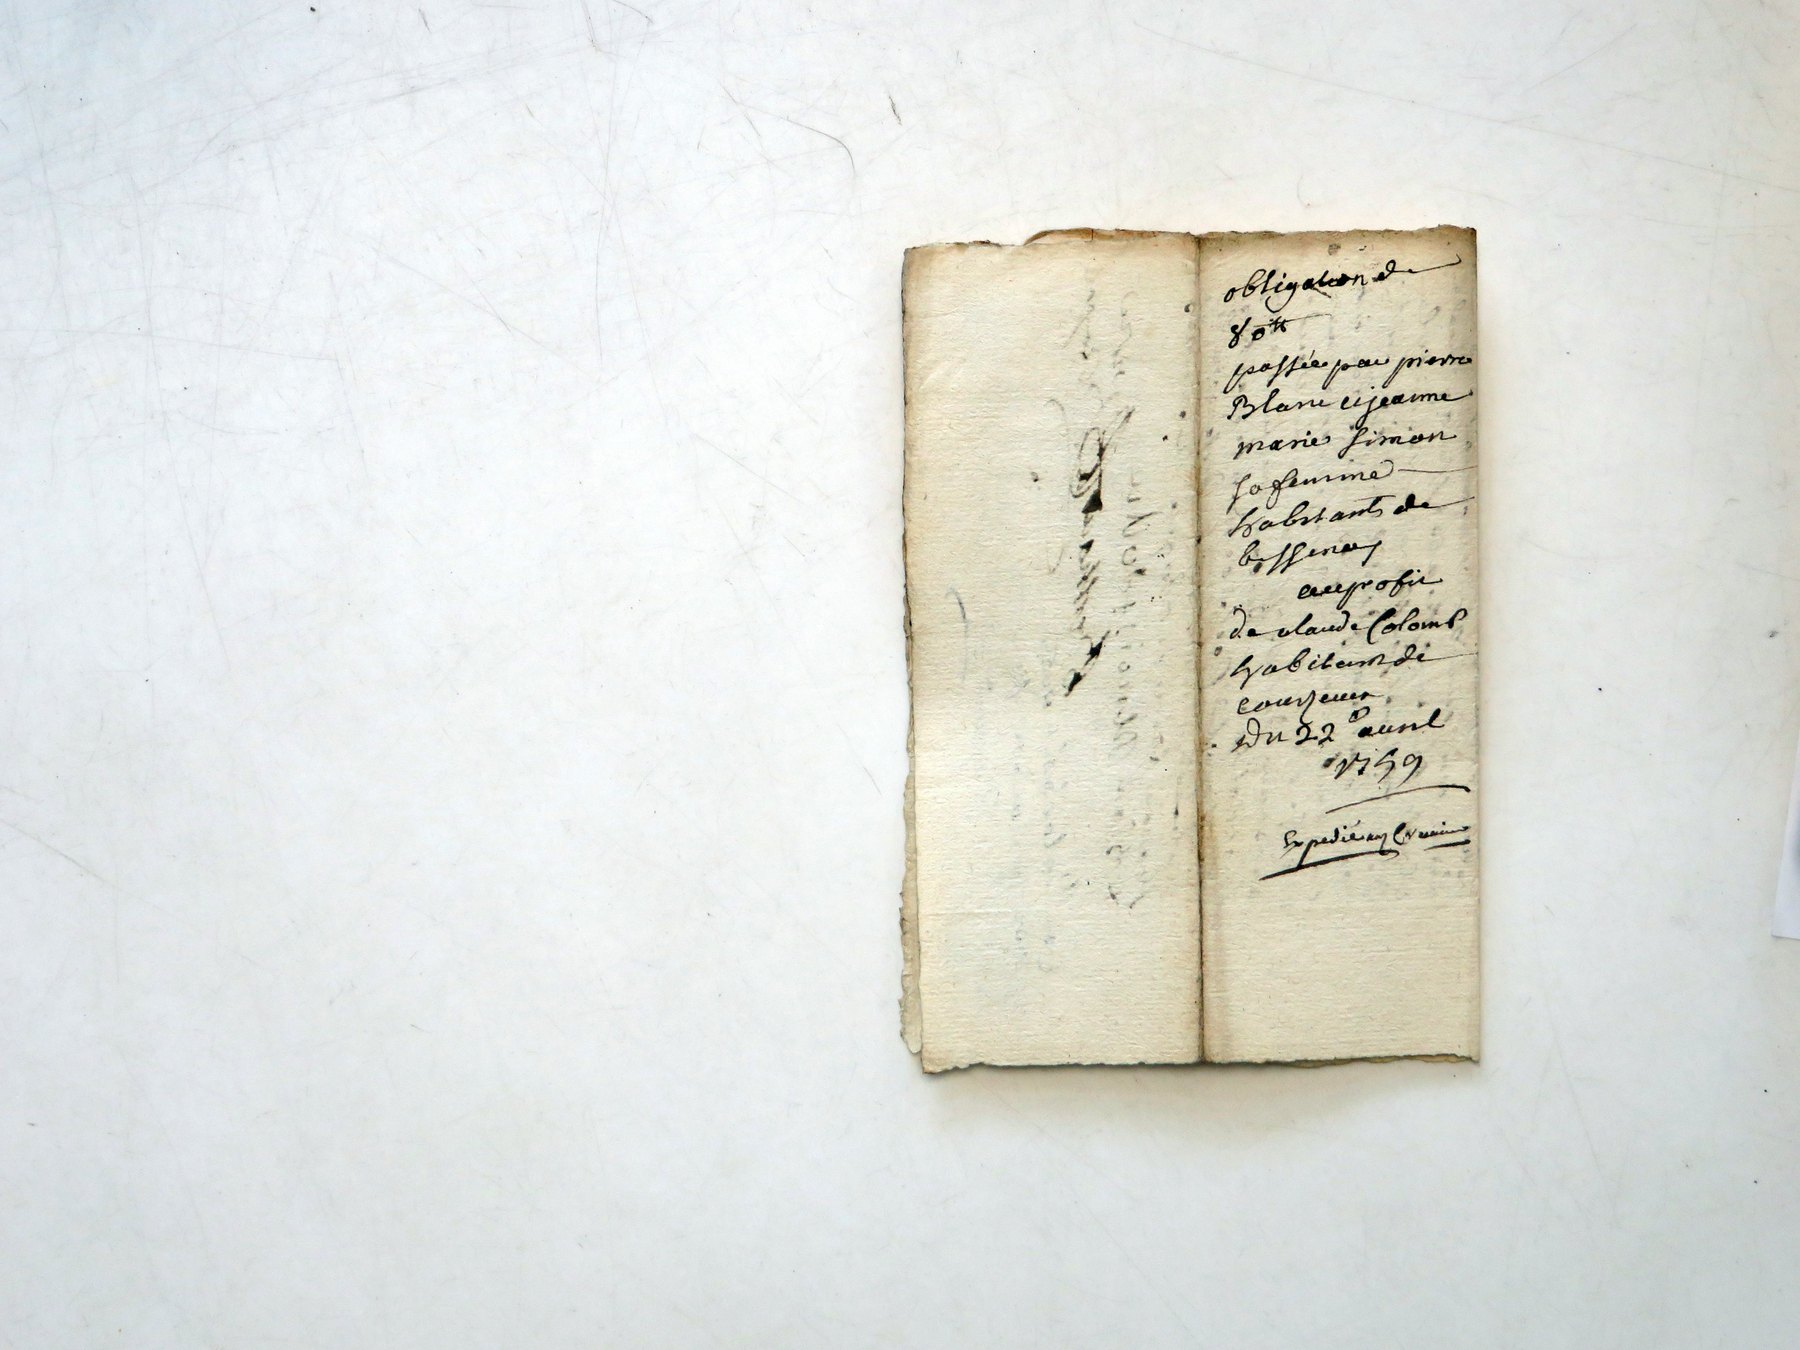 obligation de
80tt
passée par pierre
Blanc et jeanne
marie Simon
sa femme
habitants de
bessenay
au profit
de claude Colomb
habitant de
courzieux
Du 22e avril
1759
Expedié au